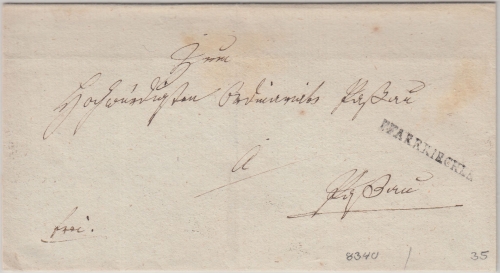 Zum
Hochwürdigsten Ordinariats Paßau
PFARRKIRCHEN
a
Paßau
frei.
8340 / 35